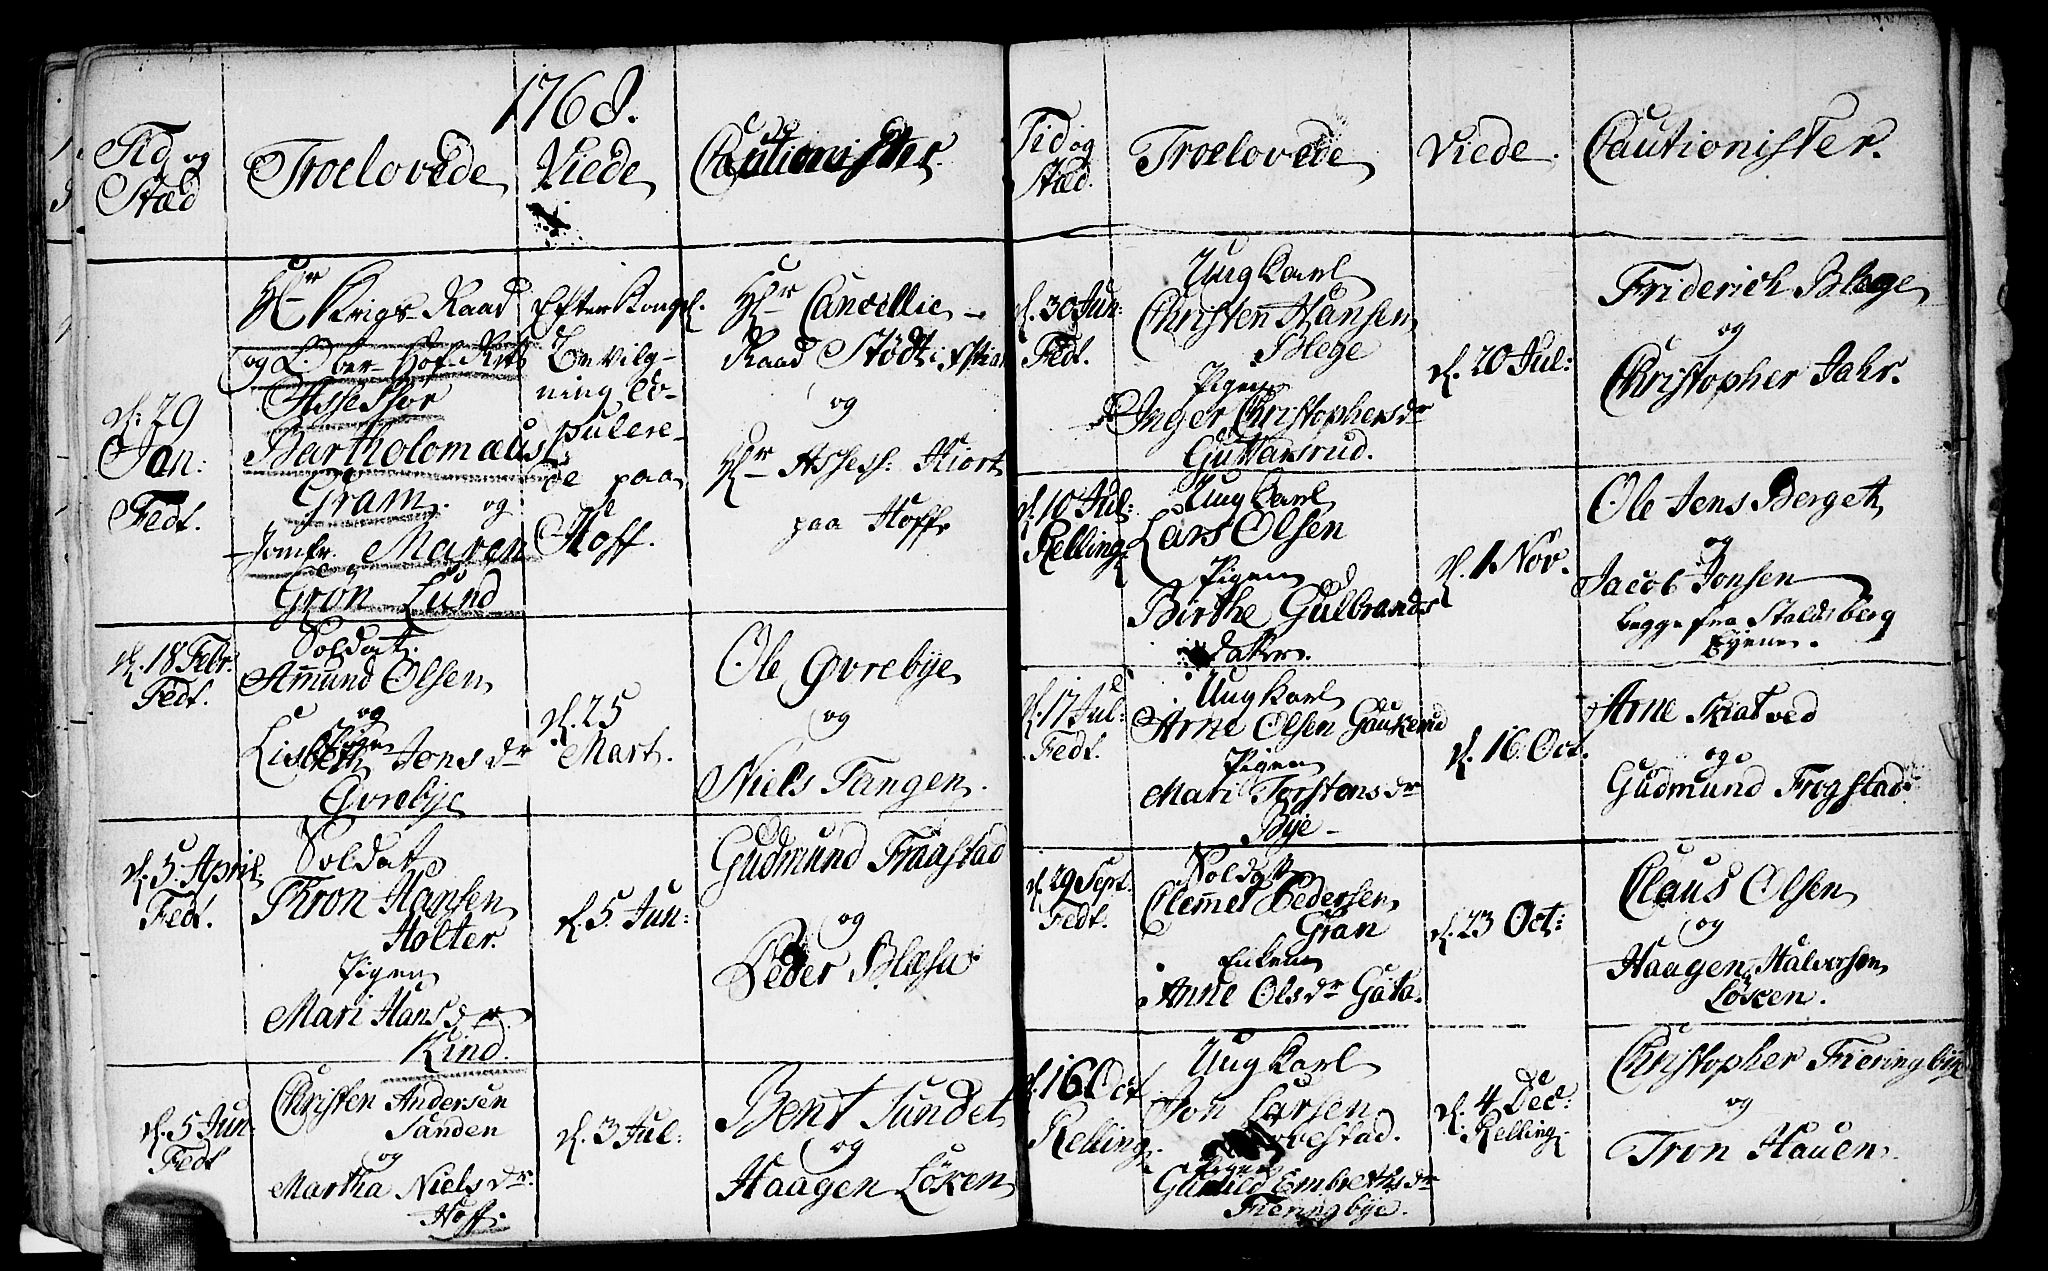 1768.
Tid og
Stæd
Troelovede
Viede
Cautionister.
d. 29
Jan:
Fedt.
Hr Krigs-Raad
og Ober-Hof-Rets
Assessor
Bartholomæus
Gram. og
Jomfr. Maren
Grön Lund
Efter Kongl.
Bevilg-
ning Co-
pulere-
de paa
Hoff.
Hr Cancellie-
Raad Stödt i
og
Hr Assess: Hiort
paa Hoff
d. 18 Febr:
Fedt.
Soldat
Amund Olsen
og
Pigen
Lisbeth Jons dr
Øvrebye
d. 25
Mart.
Ole Øvrebye
og
Niels Tangen.
d. 5. April
Fedt.
Soldat
Thron Hansen
Holter.
Pigen
Mari Hans dr
Kind.
d. 5 Jun:
Gudmund Fraastad
og
Peder Blæsa
d. 5 Jun:
Fedt
Christen Andersen
Sanden
og
Martha Niels dr
Hoff.
d. 3 Jul:
Bent Sundet
og
Haagen Löken
Tid og
Stæd.
Troelovede
Viede.
Cautionister.
d. 30 Jun:
Fedt.
Ung Karl
Christen Hansen
Blege
Pigen
Inger Christophers dr
Guttansrud.
d. 20 Jul:
Friderich Blege
og
Christopher Jahr.
d. 10 Jul:
Kelling
Ung Karl
Lars Olsen
Pigen
Birthe Gulbrands
datter.
d. 1 Nov.
Ole Jens Berget
og
Jacob Jonsen
begge fra Staldsberg
Eyene.
d. 17 Jul:
Fedt.
Ung Karl
Arne Olsen Gaukerud
Pigen
Mari Torstens dr
Bye-
d. 16. Oct.
Arne Skiatved
og
Gudmund Frogstad
d. 29 Sept.
Fedt.
Soldat
Clemmet Pedersen
Gran
Enken
Anne Ols dr Gata.
d. 23 Oct:
Claus Olsen
og
Haagen Halversen
Løken.
d. 16 Oct
Kelling
Ung Karl
Jon Larsen
Pigen
Gunild Embreths dr
Fieringbye.
d. 4 Dec:
Kelling
Christopher Fieringbye
og
Tron Hauen.